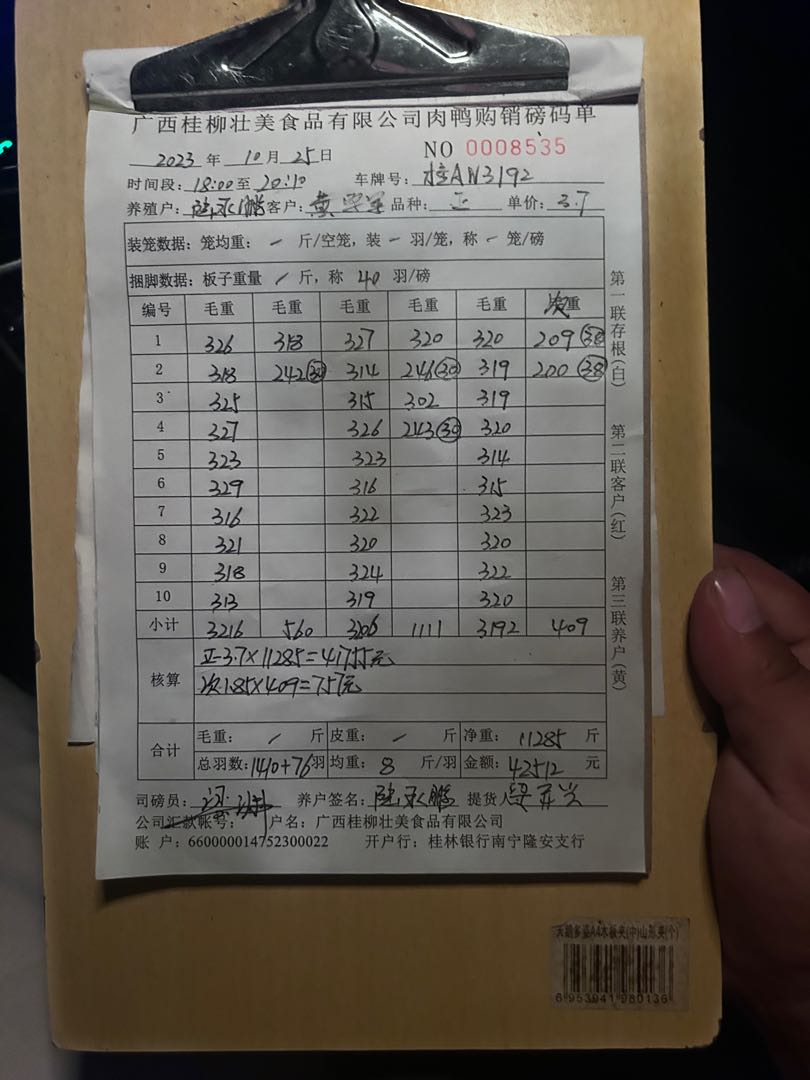 广西桂柳壮美食品有限公司肉鸭购销磅码单
2023 年 10 月 25 日 NO 0008535
时间段: 18:00 至 20:10 车牌号: 桂AN3192
养殖户: 陆永鹏 客户: 黄 品种: 正 单价: 3.7
装笼数据: 笼均重: - 斤/空笼, 装 - 羽/笼, 称 - 笼/磅
捆脚数据: 板子重量 / 斤, 称 40 羽/磅
编号 毛重 毛重 毛重 毛重 毛重 次重
1 326 318 327 320 320 209 38
2 318 242 30 314 246 30 319 200 38
3 325 315 302 319
4 327 326 243 30 320
5 323 323 314
6 329 316 315
7 316 322 323
8 321 320 320
9 318 324 322
10 313 319 320
小计 3216 560 3206 1111 3192 409
核算
正-3.7×11285=41755元
次.1.85×409=757元
合计
毛重: / 斤 皮重: - 斤 净重: 11285 斤
总羽数: 1410+76 羽 均重: 8 斤/羽 金额: 42512 元
司磅员: 养户签名: 陆永鹏 提货人
公司汇款帐号: 户名: 广西桂柳壮美食品有限公司
账 户: 660000014752300022 开户行: 桂林银行南宁隆安支行
第一联存根(白)
第二联客户(红)
第三联养户(黄)
天鹅多姿A4木板夹(中)山形夹(个)
6 953941 980136